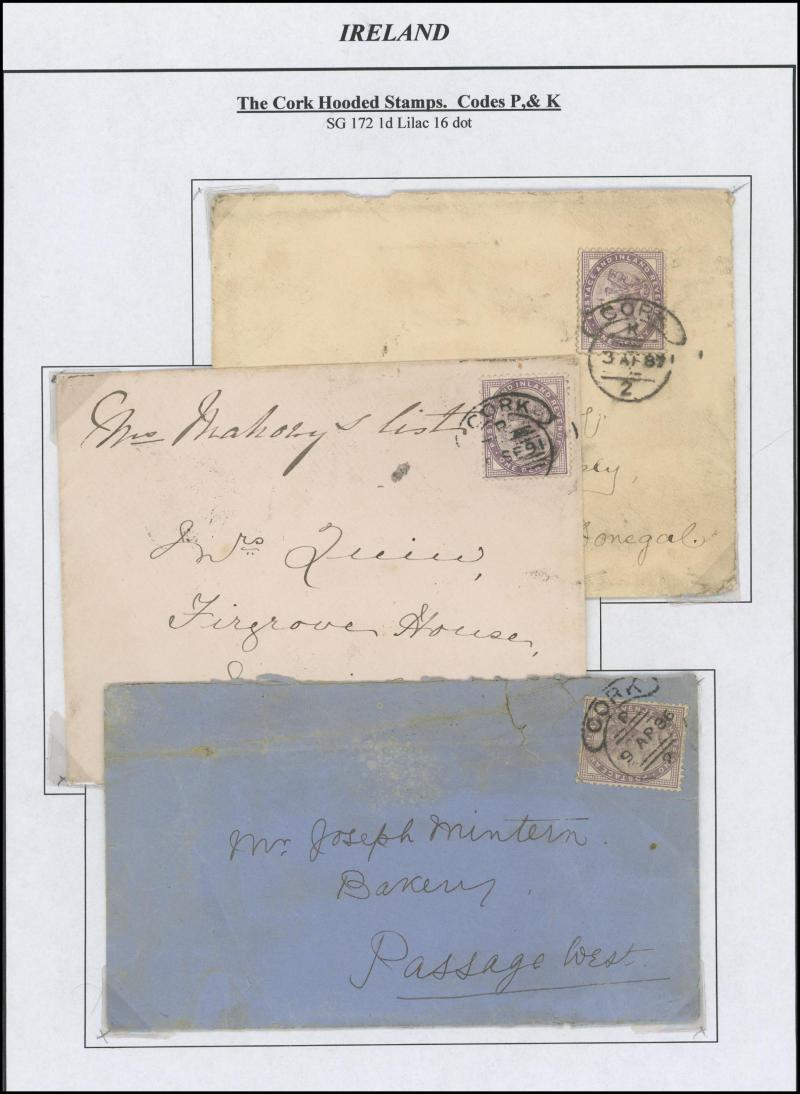 IRELAND
The Cork Hooded Stamps. Codes P,& K
SG 172 1d Lilac 16 dot
POSTAGE AND INLAND RE
CORK
K
3 AP 87
2
Donegal
Mrs Mahony's list
CORK
P
SE 91
ONE PE
Mrs Quinn,
Firgrove House,
CORK
P
AP 86
9
Mr. Joseph Mintern.
Bakery.
Passage West.